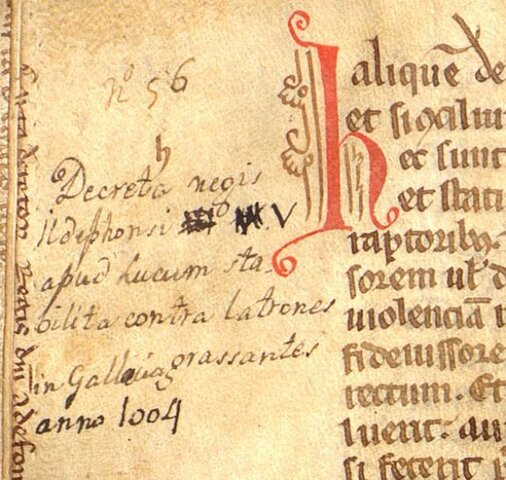 nº 56
h
Decreta regis
Ildephonsi V
apud Lucum sta-
bilita contra latrones
in grassantes
anno 1004
aliquē de
et si ꝯciliu
h ec sunt
et stati
raptoribꝫ
sorem ul' d
uiolenciā
fideiussore
rectum. Et
luerit: au
si fecerit